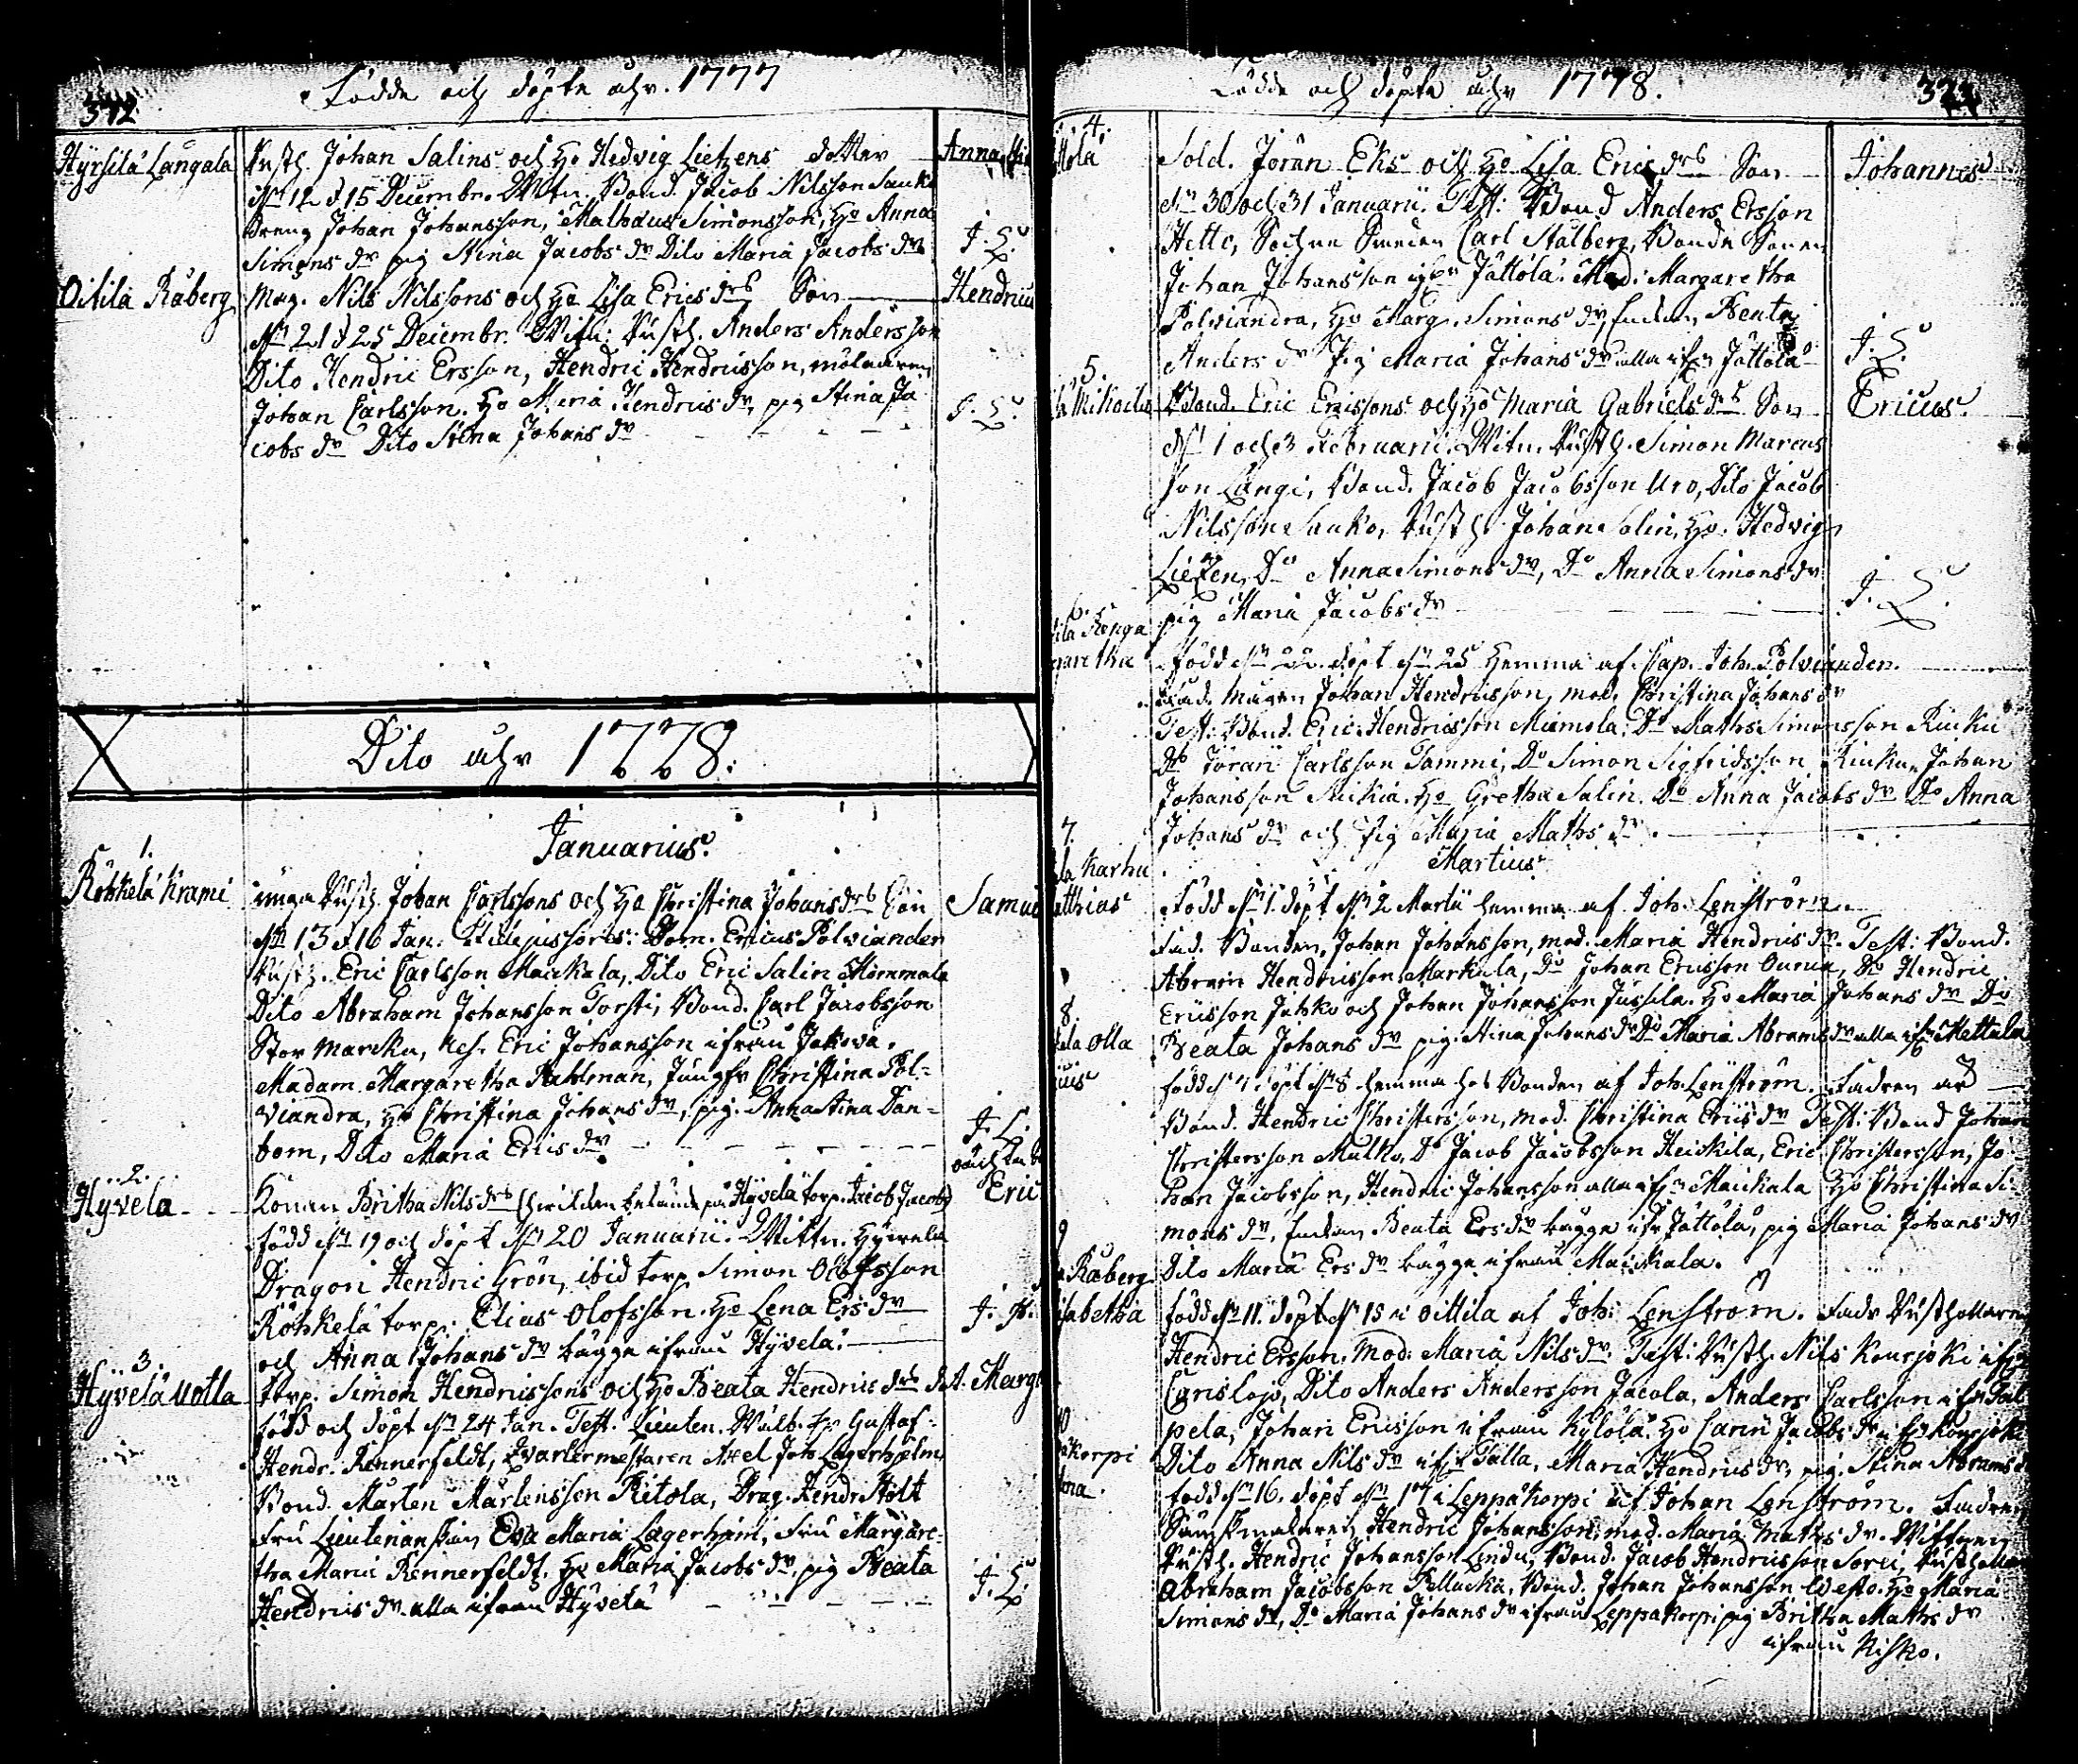 372
Födde och döpte åhr. 1777
Hyrsilä Långala Rusth. Johan Salins och Ho Hedvig Lietzens dotter Anna
dn 12 d 15 Decembr. Wittn. Bond. Jacob Nilsson Sauko
Dreng Johan Johansson, Mathaeus Simonsson, Ho Anna
Simons dr pig Stina Jacobs dr Dito Maria Jacobs dr J. L.
Oitila Råberg Mag. Nils Nilssons och Ho Lisa Erics drs Son Hendricus
dn 21 d 25 Decembr. Wittn: Rusth. Anders Andersson
Dito Hendric Ersson, Hendric Hendricsson, mölnaren
Johan Carlsson. Ho Maria Hendrics dr, pig Stina Ja
cobs dr Dito Stena Johans dr J. L.
Dito åhr 1778:
Januarius.
1.
Röhkelä Krami unga Rusth. Johan Carlssons och Ho Christina Johans drs Son Samuel
dn 13 d 16 Jan. Fidejussores: Dom. Ericus Polviander
Rusth. Eric Carlsson Maickala, Dito Eric Salin Mommola
Dito Abraham Johansson Torsti, Bond. Carl Jacobsson
Stor Marcku, Eric Johansson ifrån
Madam Margaretha Rahlman, Jungfr Christina Pol-
viandra, Ho Christina Johans dr, pig. Anna Stina Dan-
bom, Dito Maria Erics dr J. L.
2.
Hyvelä Konan Britha Nils drs Jacob Jacobs Eric
född dn 19 och döpt dn 20 Januarii. Wittn. Hyvelä
Dragon Hendric Grön, ibid torp Simon Olofsson
Röhkelä torp. Elias Olofsson. Ho Lena Ers dr
och Anna Johans dr bägge ifrån Hyvelä.
3.
Hyvelä Uotla Torp. Simon Hendricssons och Ho Beata Hendrics drs d. A. Marg
född och döpt dn 24 Jan. Test. Lieuten. Wälb. Hr Gustaf
Hendr. Rennerfeldt, Qvartermestaren Axel Joh. Lagerhjelm,
Bond. Mårten Mårtensson Ritola, Drag. Hendr. Stolt
Fru Lieutenanskan Eva Maria Lagerhjelm, Fru Margare-
tha Maria Rennerfeldt. Ho Maria Jacobs dr, pig Beata
Hendrics dr alla ifrån Hyvelä J. L.
Födde och döpte åhr 1778.
4.
Sold. Jöran Eks och Ho Lisa Erics drs Son Johannes
dn 30 och 31 Januarii. Test: Bond Anders Ersson
Carl Stålberg, Bonde Sonen
Johan Johansson Jättölä. Mad: Margaretha
Polviandra, Ho Marg. Simons dr, Enkan Beata
Anders dr Pig Maria Johans dr alla ifrn Jättölä J. L.
5.
Mikoila Bond. Eric Ericssons och Ho Maria Gabriels drs Son Ericus.
dn 1 och 3 Februarii. Wittn. Rusth. Simon Marcus
son Långi, Bond. Jacob Jacobsson Uro, Dito Jacob
Nilsson Sauko, Rusth. Johan Salin, Ho. Hedvig
Lietzen, Do Anna Simons dr, Do Anna Simons dr
pig Maria Jacobs dr J. L.
6.
född dn 22 döpt dn 25 hemma af Cap. Joh. Polviander.
Fad. Mågen Johan Hendricsson, mod. Christina Johans dr
Test: Bond. Eric Hendricsson Maimola, Do Maths Simonsson
Do Jöran Carlsson Tammi, Do Simon Sigfridsson Johan
Johansson Ho Gretha Salin. Do Anna Jacobs dr Do Anna
Johans dr och Pig Maria Maths dr.
Martius
7.
Karhu
Matthias född dn 1. döpt dn 2 Martii hemma af Joh. Lenström.
Fad. Bonden Johan Johansson, mod. Maria Hendrics dr. Test: Bond.
Abram Hendricsson Markula, Do Johan Ericsson, Do Hendric
Ericsson och Johan Johansson Jussila. Ho Maria Johans dr Do
Beata Johans dr pig. Stina Johans dr Do Maria Abrams dr alla ifrn Kettula
8.
Olla född d 7 döpt dn 8 hemma hos Bonden af Joh. Lenström. Fadren är
Bond. Hendric Christersson, mod. Christina Erics dr Test. Bond Johan
Christersson Mulko, Do Jacob Jacobsson Heickila, Eric Christersson, Jo-
han Jacobsson, Hendric Johansson alla ifrn Maickala Ho Christina Si-
mons dr, Enkan Beata Ers dr bägge ifr Jättölä, pig Maria Johans dr
Dito Maria Ers dr bägge ifrån Maickala.
9
Råberg
född dn 11. döpt dn 15 i Oittila af Joh. Lenström. Fadr Rusthollaren
Hendric Ersson, Mod: Maria Nils dr. Test: Rusth. Nils Kourjoki ifrn
Carislojo, Dito Anders Andersson Jacola, Anders Carlsson ifrn
pela, Johan Ericsson ifrån Kylölä. Ho Carin Jacobs dr ifrn Kourjoki
Dito Anna Nils dr ifr Talla, Maria Hendrics dr, pig. Stina Abrams dr
10
född dn 16. döpt dn 17 i Leppäkorpi af Johan Lenström. Fadren
Hendric Johansson, mod. Maria Maths dr. Wittnen
Rusth. Hendric Johansson Lindu, Bond. Jacob Hendricsson Sorci, Rusthollare
Abraham Jacobsson Pelluckä, Bond. Johan Johansson Westo. Ho Maria
Simons dr, Do Maria Johans dr ifrån Leppäkorpi pig Britha Maths dr
ifrån Kisko.